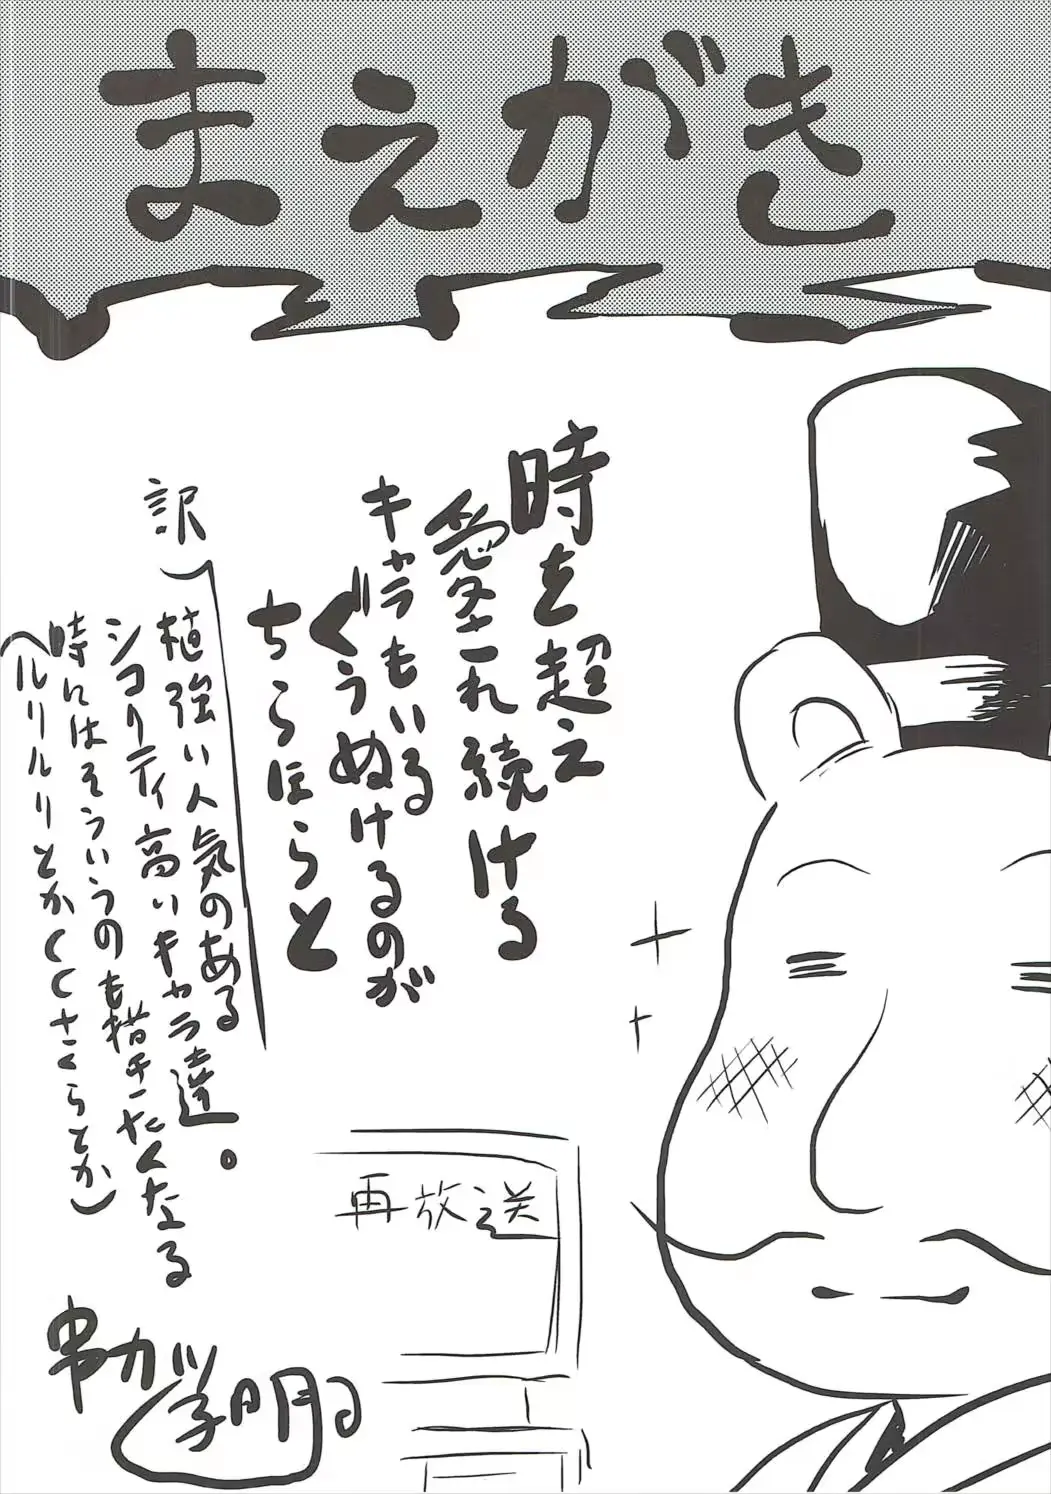 まえがき
時を超え
愛され続ける
キャラもいる
ぐうぬけるのが
ちらほらと
訳
植強い人気のある
シコリティ高いキャラ達。
時にはそういうのも描きたくなる
(ルリルリとかCCさくらとか)
再放送
串カツ学明